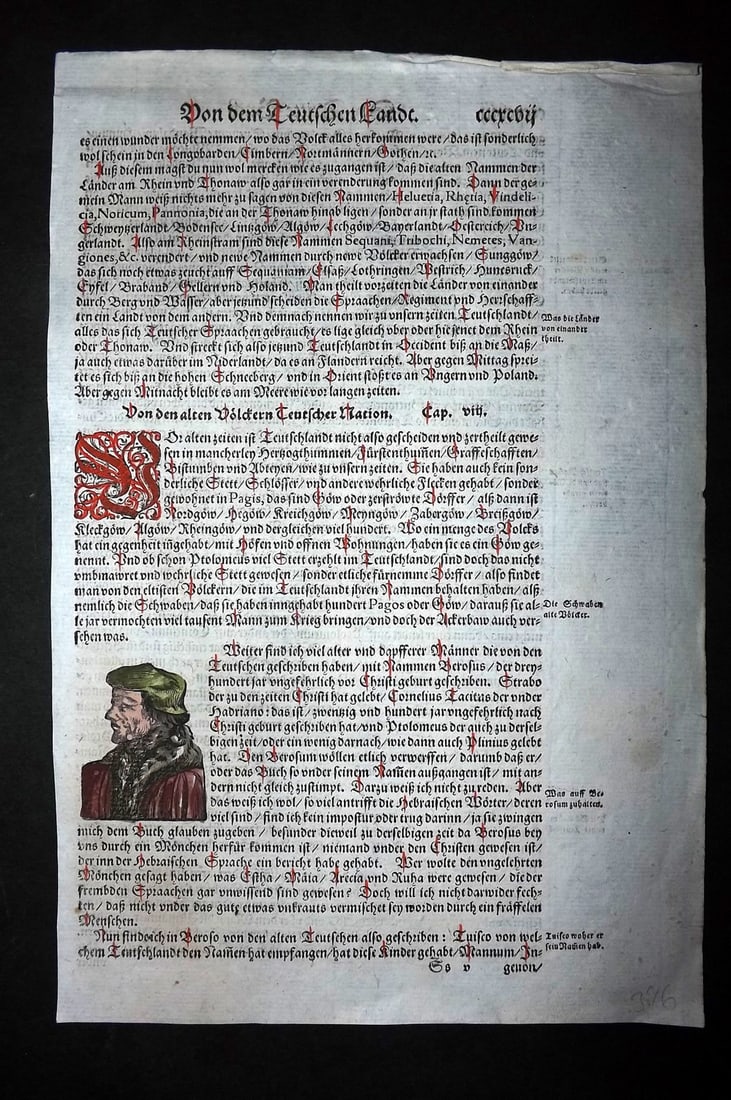 Von dem Teutschen Landt. cccxcvij
es einen wunder möchte nemmen / wo das Volck alles herkommen were / das ist sonderlich
wol schein in den Longobarden / Cimbern / Nortmännern / Gothen / ꝛc.
Auß disem magst du nun wol mercken wie es zugangen ist / daß die alten Nammen der
Länder am Rhein vnd Thonaw also gar in ein verenderung kommen sind. Dann der ge-
mein Mann weiß nichts mehr zu sagen von diesen Nammen / Heluetia, Rhętia, Vindeli-
cia, Noricum, Pannonia, die an der Thonaw hinab ligen / sonder an jr stath sind kommen
Schweytzerlandt / Bodensee / Lintzgöw / Algöw / Lechgöw / Bayerlandt / Oesterreich / Vn-
gerlandt. Also am Rheinstram sind diese Nammen Sequani, Tribochi, Nemetes, Van-
giones, &c. verendert / vnd newe Nammen durch newe Völcker erwachsen / Sunggöw /
das sich noch etwas zeucht auff Sequaniam / Elsaß / Lothringen / Westrich / Hunesruck /
Eyfel / Braband / Gellern vnd Holand. Man theilt vorzeiten die Länder von einander
durch Berg vnd Wasser / aber jetzund scheiden die Spraachen / Regiment vnd Herrschaff-
ten ein Landt von dem andern. Vnd demnach nennen wir zu vnsern zeiten Teutschlandt /
alles das sich Teutscher Spraachen gebraucht / es lige gleich vber oder hiejenet dem Rhein
oder Thonaw. Vnd streckt sich also jetzund Teutschlandt in Occident biß an die Maß /
ja auch etwas darüber im Niderlandt / da es an Flandern reicht. Aber gegen Mittag sprei-
tet es sich biß an die hohen Schneeberg / vnd in Orient stößt es an Vngern vnd Poland.
Aber gegen Mitnacht bleibt es am Meere wie vor langen zeiten.
Was die Länder
von einander
theilt.
Von den alten Völckern Teutscher Nation. Cap. viij.
VOr alten zeiten ist Teutschlandt nicht also gescheiden vnd zertheilt gewe-
sen in mancherley Hertzogthummen / Fürstenthumen / Graffeschafften /
Bistumben vnd Abteyen / wie zu vnsern zeiten. Sie haben auch kein son-
derliche Stett / Schlösser / vnd andere wehrliche Flecken gehabt / sonder
gewohnet in Pagis, das sind Göw oder zerströwte Dörffer / alß dann ist
Nordgöw / Hegöw / Kreichgöw / Meyngöw / Zabergöw / Breißgöw /
Kleckgöw / Algöw / Rheingöw / vnd dergleichen viel hundert. Wo ein menge des Volcks
hat ein gegenheit inngehabt / mit Höfen vnd offnen Wohnungen / haben sie es ein Göw ge-
nennt. Vnd ob schon Ptolomeus viel Stett erzehlt im Teutschlandt / sind doch das nicht
vmbmawret vnd wehrliche Stett gewesen / sonder etliche fürnemme Dörffer / also findet
man von den eltisten Völckern / die im Teutschlandt jhren Nammen behalten haben / alß
nemlich die Schwaben / daß sie haben inngehabt hundert Pagos oder Göw / darauß sie al-
le jar vermochten viel tausent Mann zum Krieg bringen / vnd doch der Ackerbaw auch ver-
sehen was.
Die Schwaben
alte Völcker.
Weiter sind ich viel alter vnd dapfferer Männer die von den
Teutschen geschriben haben / mit Nammen Berosus / der drey-
hundert jar vngefehrlich vor Christi geburt geschriben. Strabo
der zu den zeiten Christi hat gelebt / Cornelius Tacitus der vnder
Hadriano: das ist / zwentzig vnd hundert jar vngefehrlich nach
Christi geburt geschriben hat / vnd Ptolomeus der auch zu dersel-
bigen zeit / oder ein wenig darnach / wie dann auch Plinius gelebt
hat. Den Berosum wöllen etlich verwerffen / darumb daß er /
oder das Buch so vnder seinem Nam̃en außgangen ist / mit an-
dern nicht gleich zustimpt. Darzu weiß ich nicht zu reden. Aber
das weiß ich wol / so viel antrifft die Hebraischen Wörter / deren
viel sind / find ich kein impostur oder trug darinn / ja sie zwingen
mich dem Buch glauben zugeben / besunder dieweil zu derselbigen zeit da Berosus bey
vns durch ein Mönchen herfür kommen ist / niemand vnder den Christen gewesen ist /
der inn der Hebraischen Sprache ein bericht habe gehabt. Wer wolte den vngelehrten
Mönchen gesagt haben / was Estha / Maia / Arecia vnd Ruha were gewesen / die der
frembden Spraachen gar vnwissend sind gewesen? Doch will ich nicht darwider fech-
ten / daß nicht vnder das gute etwas vnkrauts vermischet sey worden durch ein fräffelen
Menschen.
Was auff Be-
rosum zuhalten.
Nun finde ich in Beroso von den alten Teutschen also geschriben: Tuisco von wel-
chem Teutschlandt den Nam̃en hat empfangen / hat diese Kinder gehabt / Mannum / In-
Tuisco woher er
sein Nam̃en hab.
Ss v geuon /